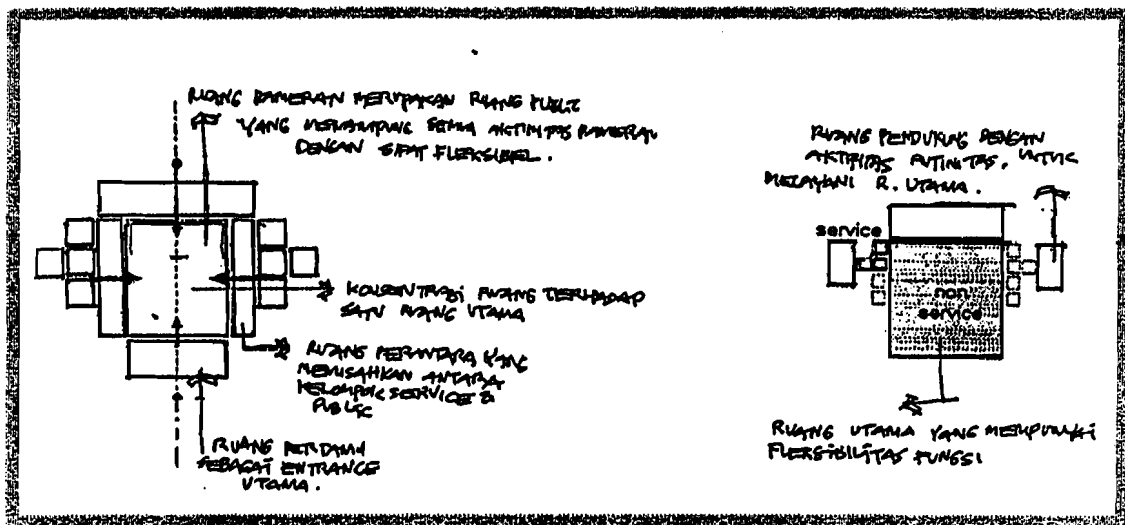 RUANG PAMERAN MERUPAKAN RUANG PUBLIC
YANG MENAMPUNG SEMUA AKTIFITAS PAMERAN
DENGAN SIFAT FLEKSIBEL.
KONSENTRASI RUANG TERHADAP
SATU RUANG UTAMA
RUANG PERANTARA YANG
MEMISAHKAN ANTARA
KELOMPOK SERVICE &
PUBLIC
RUANG
SEBAGAI ENTRANCE
UTAMA.
RUANG PENDUKUNG DENGAN
AKTIFITAS RUTINITAS. UNTUK
MELAYANI R. UTAMA.
service
non
service
RUANG UTAMA YANG MEMPUNYAI
FLEKSIBILITAS FUNGSI